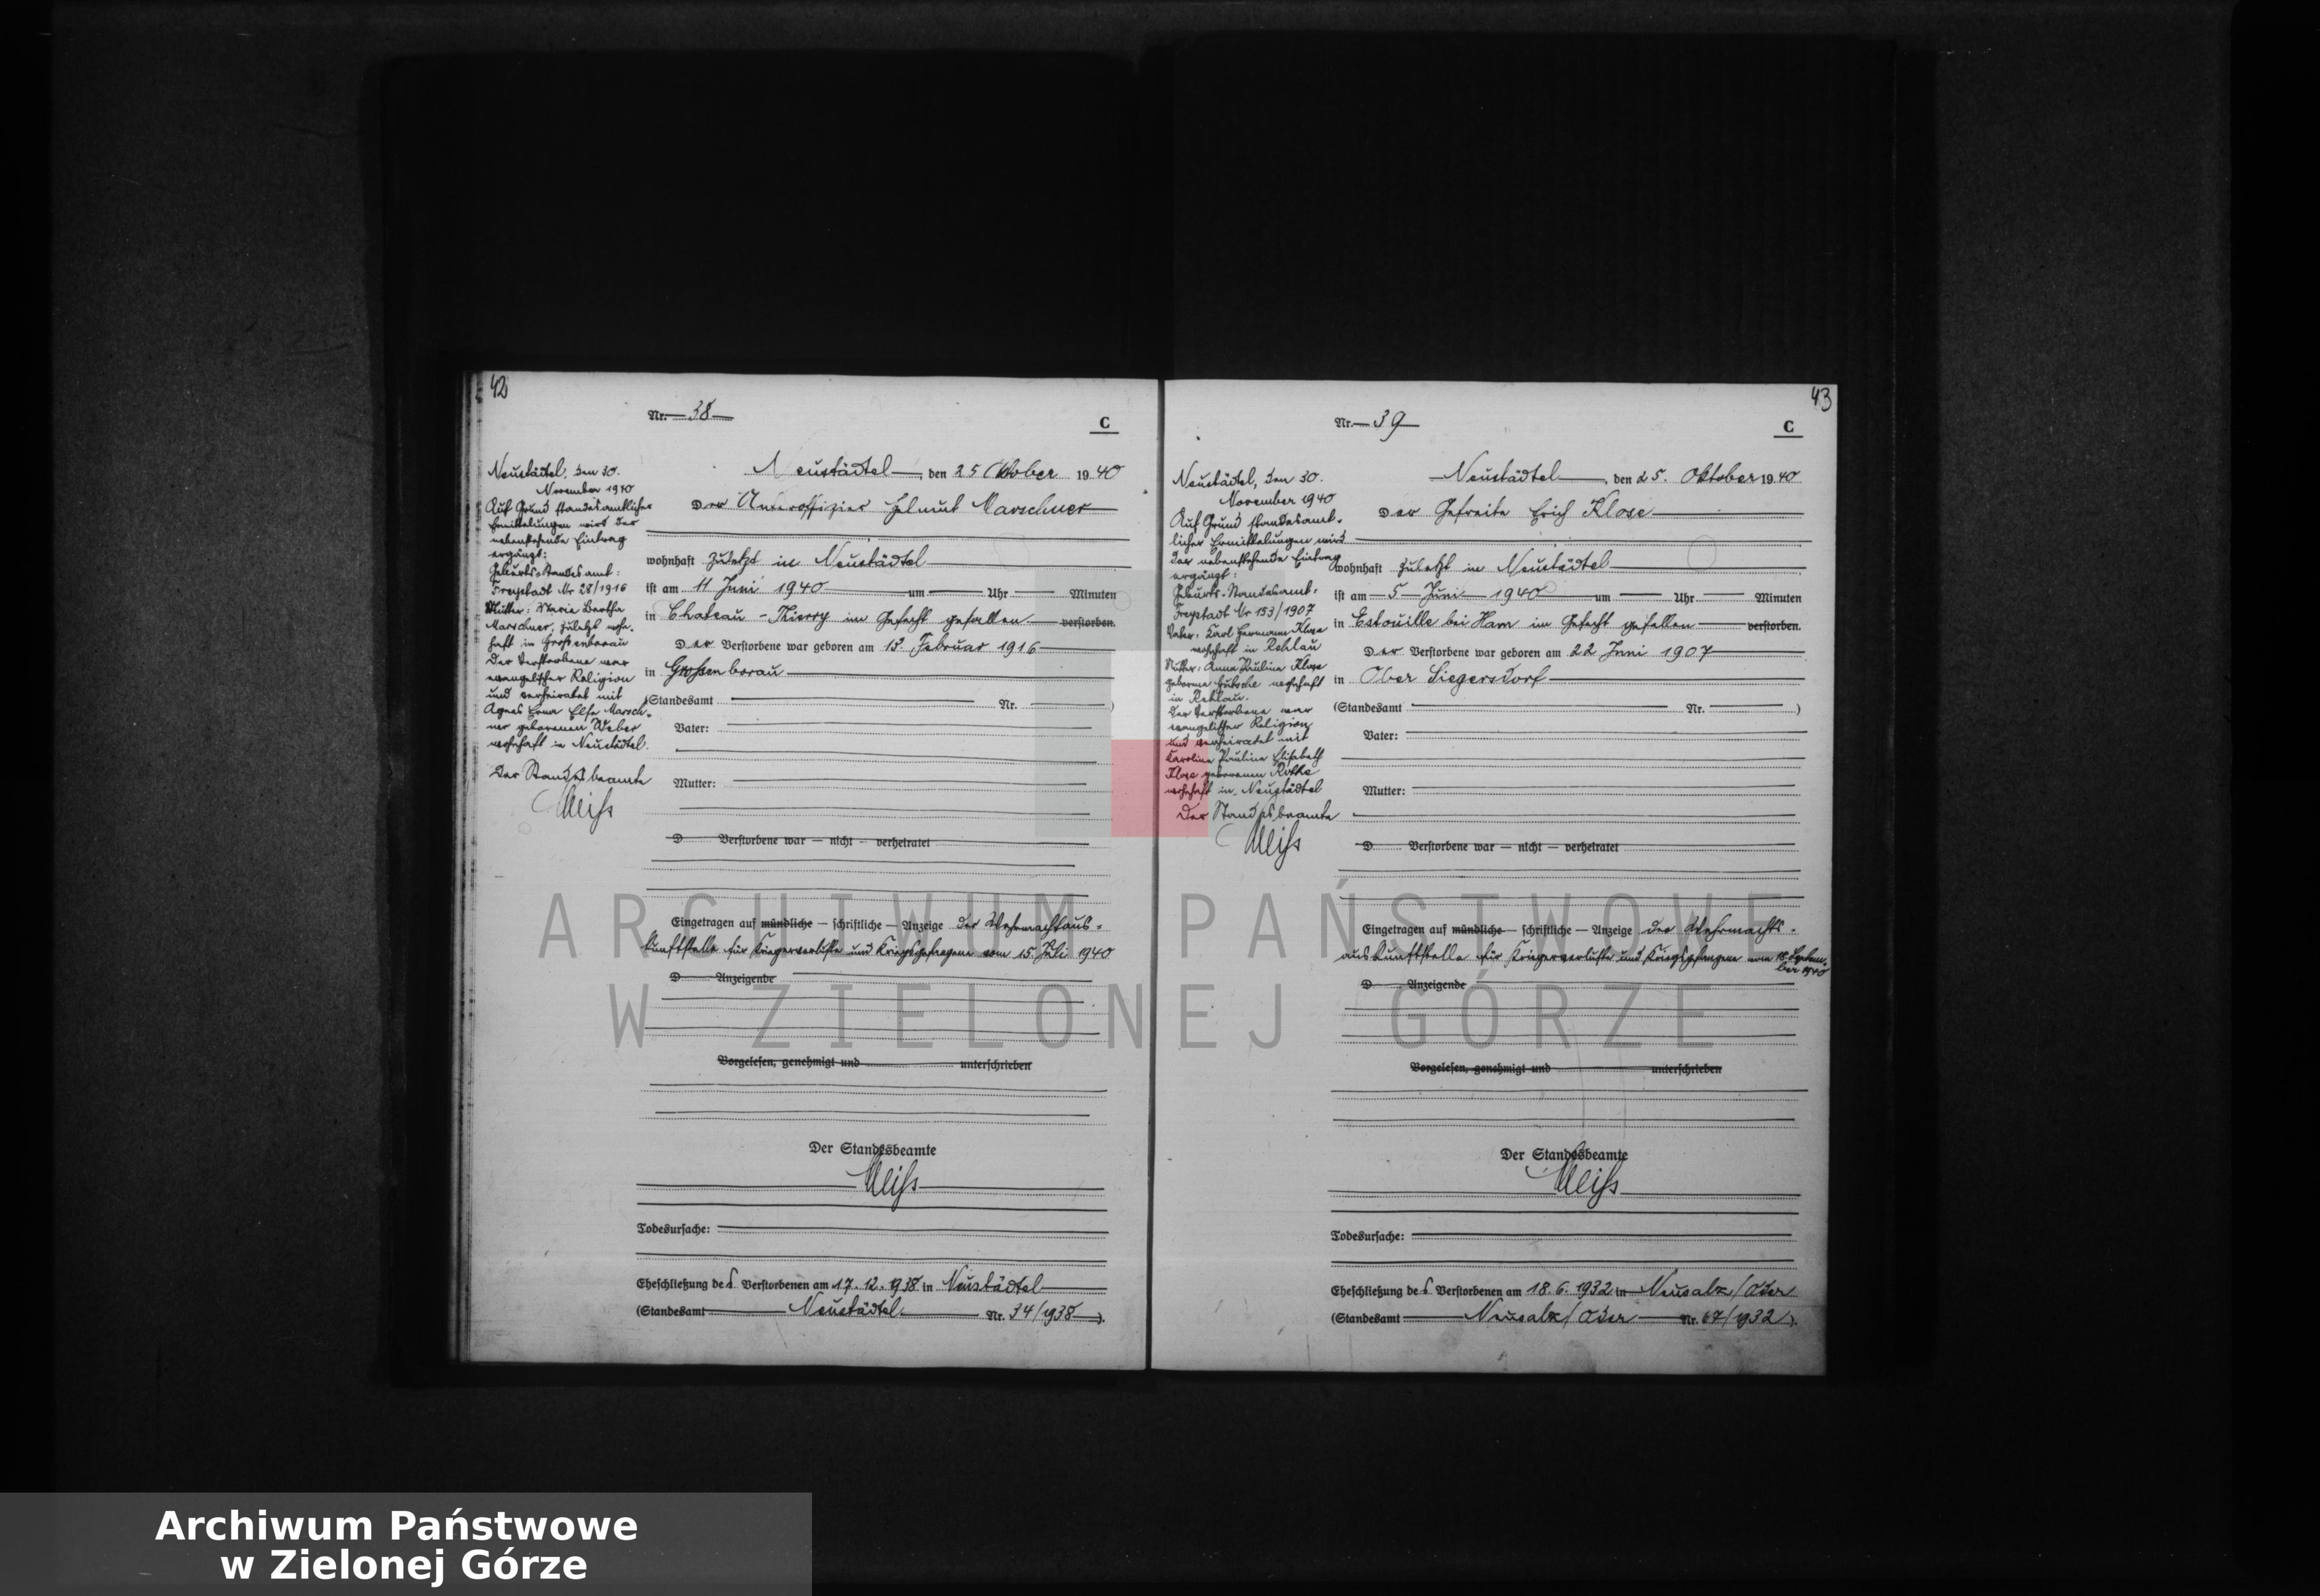 42
Nr. 38
C
Neustädtel, den 30.
November 1940
Auf Grund standesamtlicher
Ermittelungen wird der
nebenstehende Eintrag
ergänzt:
Geburts-Standesamt:
Freystadt Nr 28/1916
Mutter: Maria Bertha
Marschner, zuletzt wohn-
haft in Großenborau
Der Verstorbene war
evangelischer Religion
und verheiratet mit
Agnes Erna Else Marsch-
ner geborenen Weber
wohnhaft in Neustädtel.
Der Standesbeamte
Weiß
Neustädtel, den 25 Oktober 1940
Der Unteroffizier Helmut Marschner
wohnhaft zuletzt in Neustädtel
ist am 11 Juni 1940 um Uhr Minuten
in Chateau-Thierry im Gefecht gefallen verstorben.
Der Verstorbene war geboren am 13. Februar 1916
in Großenborau
(Standesamt Nr. )
Vater:
Mutter:
D Verstorbene war — nicht — verheiratet
Eingetragen auf mündliche — schriftliche — Anzeige der Wehrmachtaus-
kunftstelle für Kriegerverluste und Kriegsgefangene vom 15. Juli 1940
D Anzeigende
Vorgelesen, genehmigt und unterschrieben
Der Standesbeamte
Weiß
Todesursache:
Eheschließung des Verstorbenen am 17. 12. 1938 in Neustädtel
(Standesamt Neustädtel Nr. 34/1938).
43
Nr. 39
C
Neustädtel, den 30.
November 1940
Auf Grund standesamt-
licher Ermittelungen wird
der nebenstehende Eintrag
ergänzt:
Geburts-Standesamt:
Freystadt Nr 153/1907
Vater: Karl Hermann Klose
wohnhaft in Rehlau
Mutter: Anna Pauline Klose
geborene wohnhaft
in Rehlau.
Der Verstorbene war
evangelischer Religion
und verheiratet mit
Karoline Pauline Elisabeth
Klose geborenen Rothe
wohnhaft in Neustädtel
Der Standesbeamte
Weiß
Neustädtel, den 25. Oktober 1940
Der Gefreite Erich Klose
wohnhaft zuletzt in Neustädtel
ist am 5 Juni 1940 um Uhr Minuten
in Estouille bei Ham im Gefecht gefallen verstorben.
Der Verstorbene war geboren am 22 Juni 1907
in Ober Siegersdorf
(Standesamt Nr. )
Vater:
Mutter:
D Verstorbene war — nicht — verheiratet
Eingetragen auf mündliche — schriftliche — Anzeige der Wehrmachts-
auskunftstelle für Kriegerverluste und Kriegsgefangene vom 18. Septem-
ber 1940
D Anzeigende
Vorgelesen, genehmigt und unterschrieben
Der Standesbeamte
Weiß
Todesursache:
Eheschließung des Verstorbenen am 18. 6. 1932 in Neusalz/Oder
(Standesamt Neusalz/Oder Nr. 67/1932).
ARCHIWUM PAŃSTWOWE
W ZIELONEJ GÓRZE
Archiwum Państwowe
w Zielonej Górze